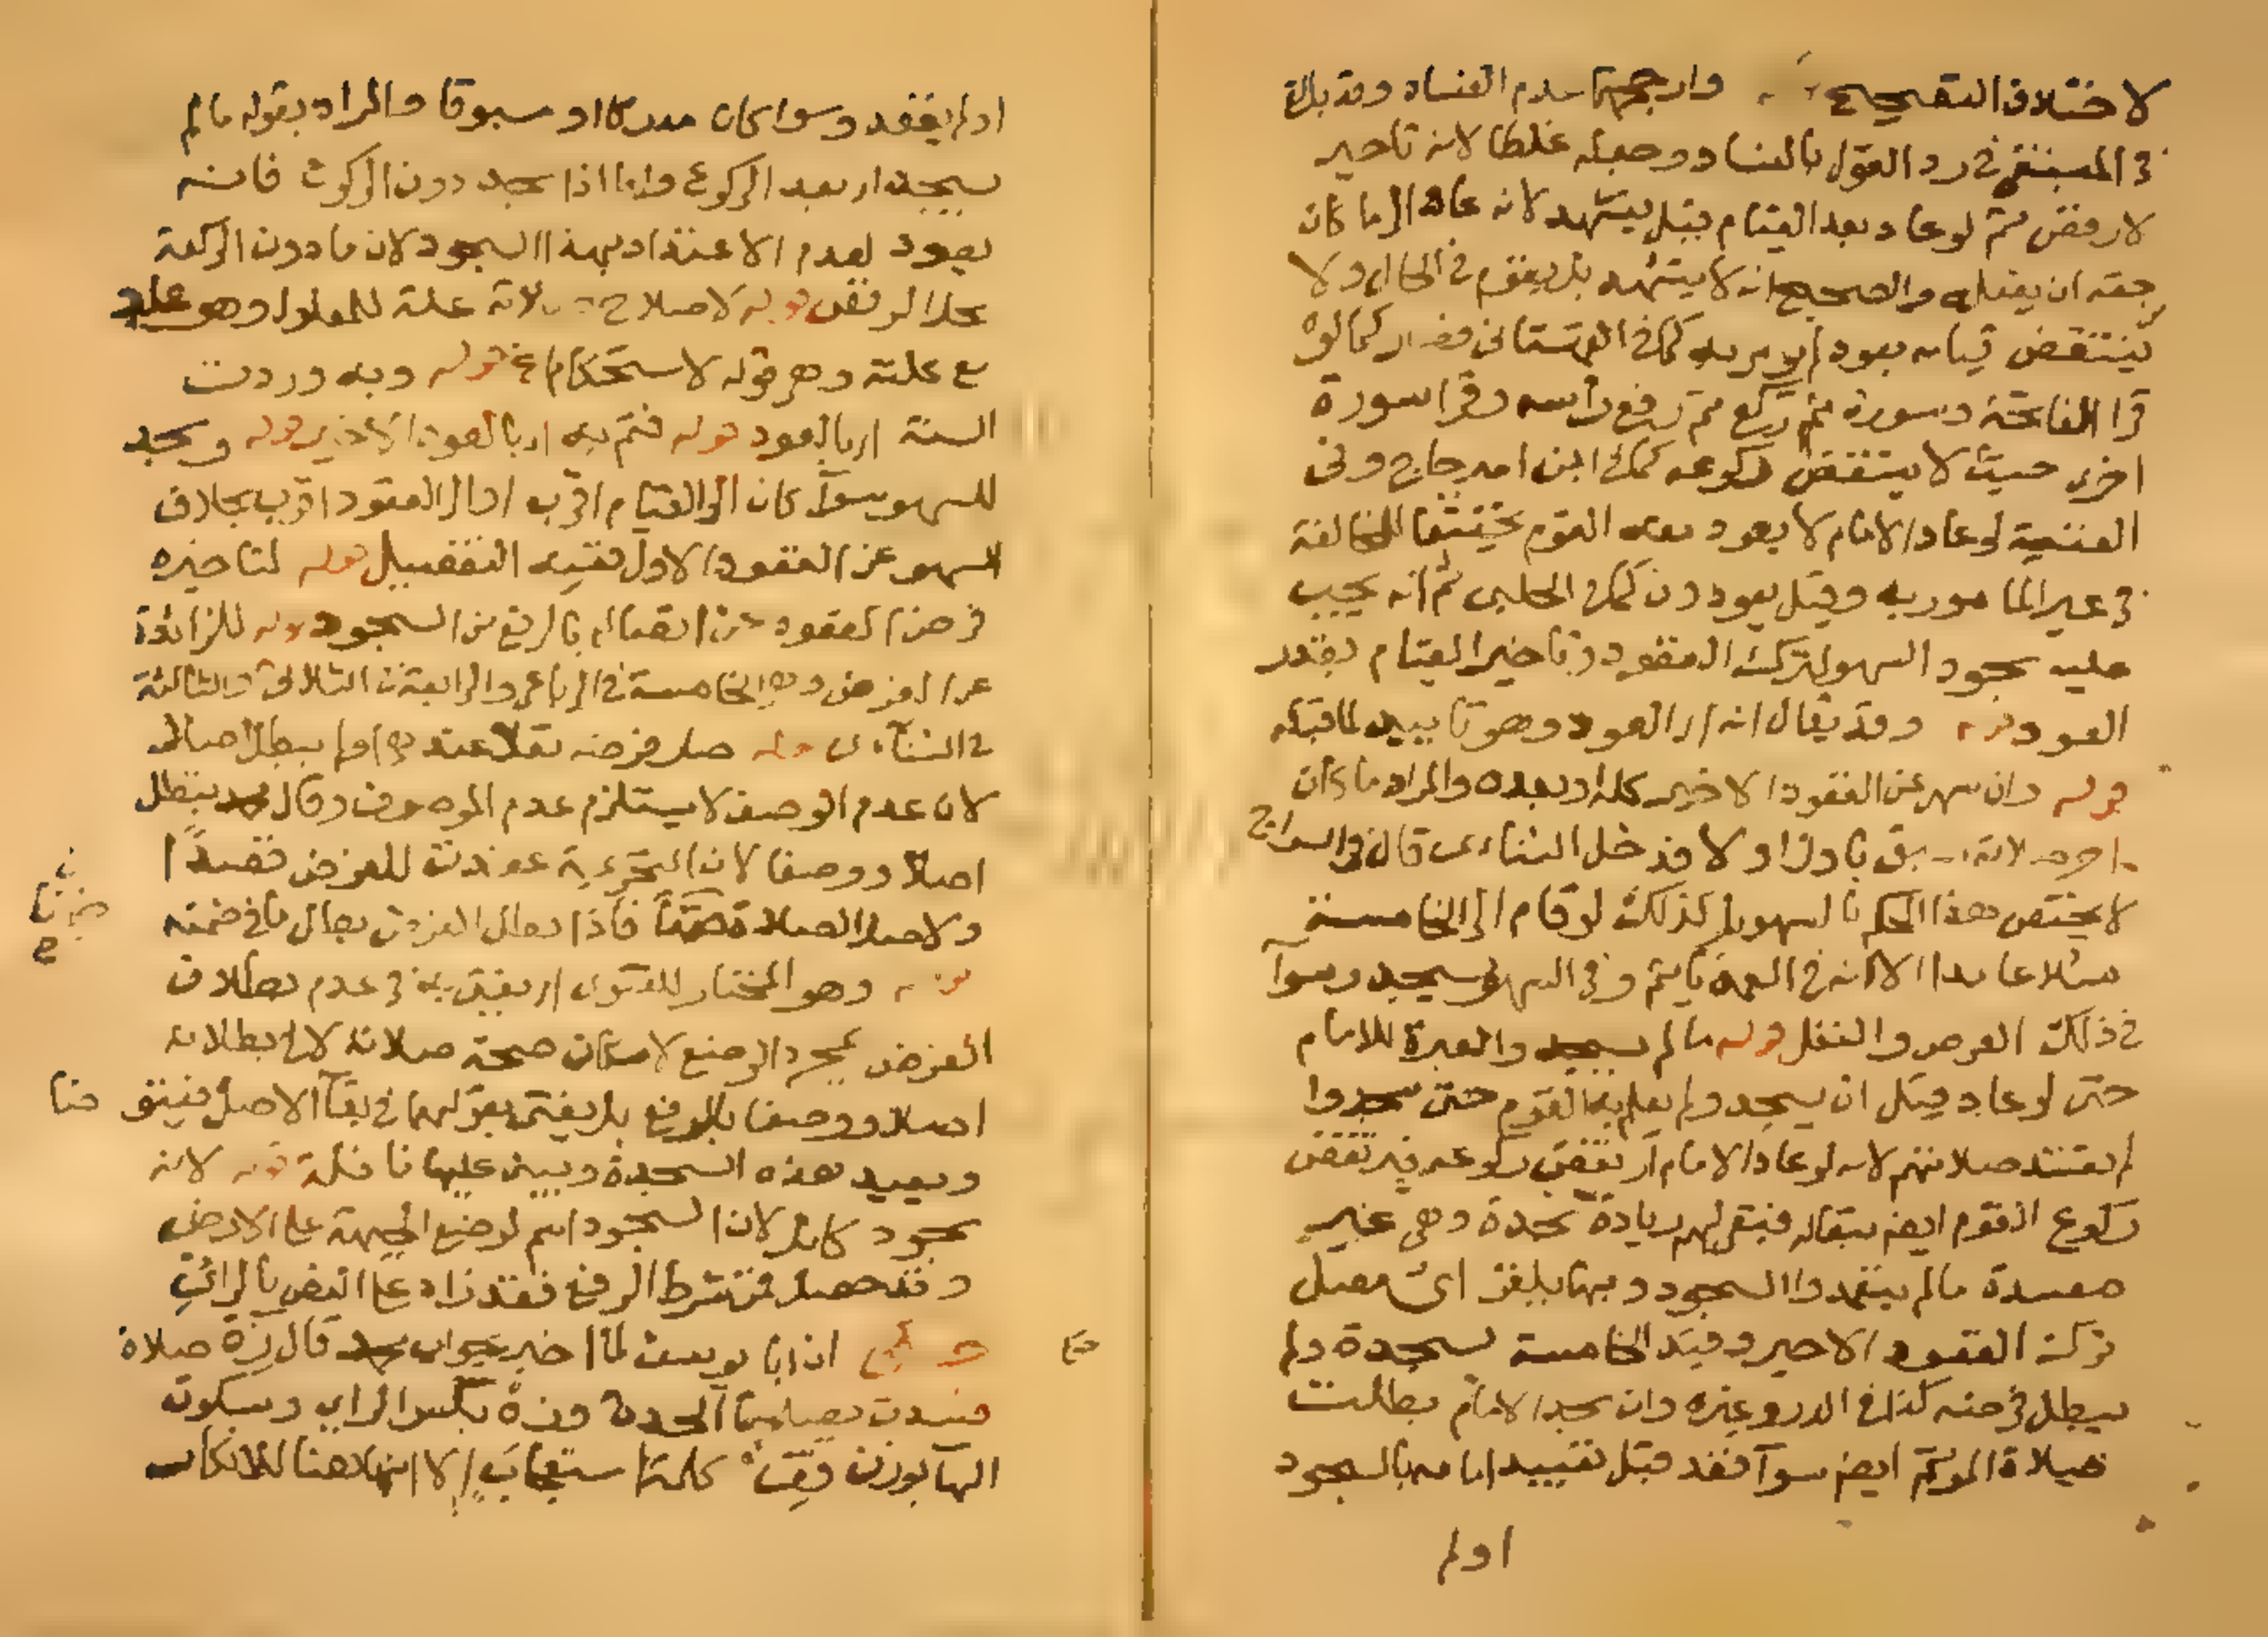 لاختلاف التصحيح وارجحهما عدم الفساد وقد بالغ
في المبتغى في رد القول بالفساد وجعله غلطا لانه تاخير
لا رفض ثم لو عاد بعد القيام قيل يتشهد لانه عاد الى ما كان
حقه ان يفعله والصحيح انه لا يتشهد بل يقوم في الحال ولا
ينتقض قيامه بعود لم يومر به كما في القهستاني فصار كما لو
قرا الفاتحة وسورة ثم ركع ثم رفع راسه وقرا سورة
اخرى حيث لا ينتقض ركوعه كما في ابن امير حاج وفي
القنية لو عاد الامام لا يعود معه القوم تحقيقا للمخالفة
في غير المامور به وقيل يعودون كما في الحلبي ثم انه يجب
عليه سجود السهو لترك القعود وتاخير القيام بقدر
العود قوله وقد يقال انه اي العود وهو تاييد لما قبله
قوله وان سهى عن القعود الاخير كله او بعضه والمراد ما كان
اخر صلاته سبق باول او لا فدخل الثنائي قال في السراج
لا يختص هذا الحكم بالسهو بل كذلك لو قام الى الخامسة
مثلا عامدا الا انه في العمد ياثم وفي السهو يسجد وسوآ
في ذلك الفرض والنفل قوله ما لم يسجد والعبرة للامام
حتى لو عاد قبل ان يسجد ولم يعلم به القوم حتى سجدوا
لم تفسد صلاتهم لانه لو عاد الامام ارتفض ركوعه فيرتفض
ركوع القوم ايضا تبعا له فتبقى لهم زيادة سجدة وهي غير
مفسدة ما لم يتعمدوا السجود وبهذا يلغز اي مصل
ترك القعود الاخير وقيد الخامسة بسجدة ولم
يبطل فرضه كذا في الدر وغيره وان سجد الامام بطلت
صلاة المؤتم ايضا سوآ قعد قبل تقييد امامه بالسجود
او لم
او لم يقعد وسوا كان مدركا او مسبوقا والمراد بقوله ما لم
يسجد اي بعد الركوع واما اذا سجد دون الركوع فانه
يعود لعدم الاعتداد بهذا السجود لان ما دون الركعة
محل الرفض قوله لاصلاح صلاته علة للمعلول وهو عاد
مع علته وهي قوله لاستحكام قوله وبه وردت
السنة اي بالعود قوله ختم به اي بالعقود الاخير قوله وسجد
للسهو سوآ كان الى القيام اقرب او الى القعود اقرب بخلاف
السهو عن القعود الاول ففيه التفصيل قوله لتاخيره
فرض القعود عن اتصاله بالرفع من السجود قوله للزائدة
على الفرض وهي الخامسة في الرباعي والرابعة في الثلاثي والثالثة
في الثنائي قوله صار فرضه نفلا عندهما ولم يبطل اصلا
لان عدم الوصف لا يستلزم عدم الموصوف وقال محمد يبطل
اصلا ووصفا لان التحريمة عقدت للفرض قصدا
ولاصل الصلاة ضمنا فاذا بطل الفرض بطل ما في ضمنه
ضمنا
صح
قوله وهو المختار للفتوى اي يفتى به في عدم بطلان
الفرض بمجرد الوضع لامكان صحة صلاته لا في بطلانه
اصلا ووصفا بالرفع بل يفتى بقولهما في بقآ الاصل
ويعيد هذه السجدة ويبني عليها نافلة قوله لانه
سجود كامل لان السجود اسم لوضع الجبهة على الارض
وقد حصل فمن شرط الرفع فقد زاد على النص بالراي
ان ابا يوسف لما اخبر بجواب محمد قال زه صلاة
فسدت يصلحها الحدث وزه بكسر الزاي وسكون
الهآ بوزن قف كلمة استعجاب الا انها هنا للانكار